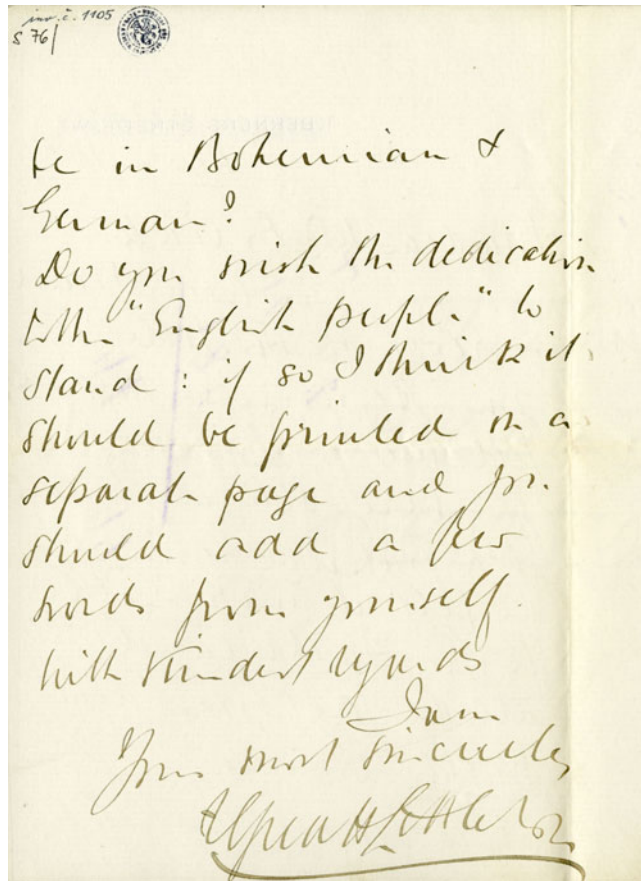 inv. č. 1105
S 76/
be in Bohemian &
German?
Do you wish the dedication
to the "English people" to
stand: if so I think it
should be printed on a
separate page and you
should add a few
words from yourself.
With kindest regards
I am
Yours most sincerely
Alfred H Littleton